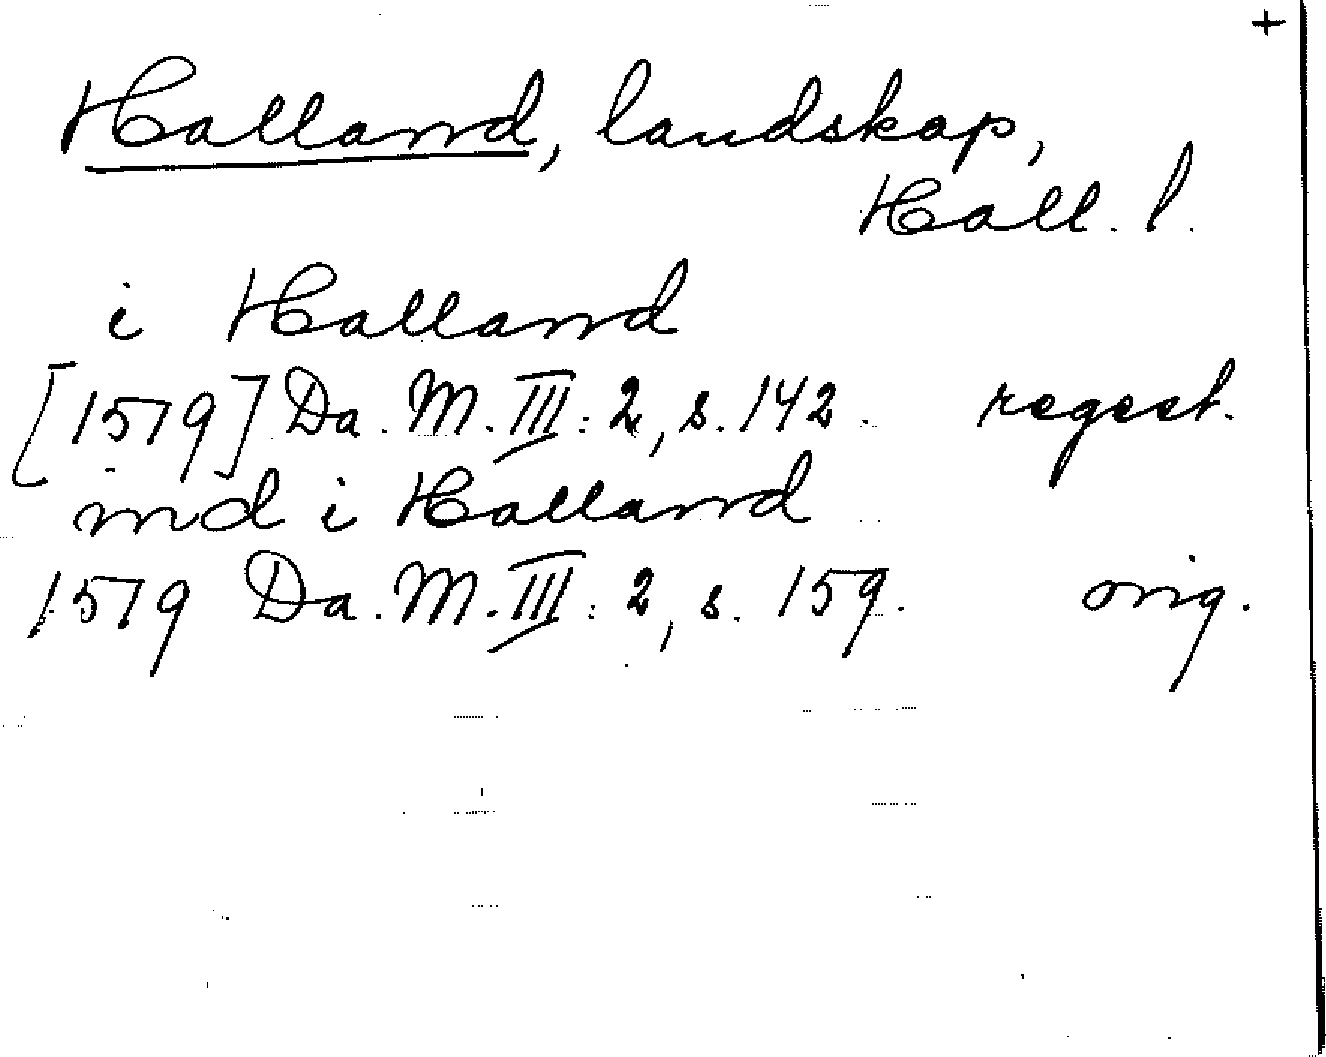 +
Halland, landskap,
Hall. l.
i Halland
[1579] Da. M. III: 2, s. 142. regest.
ind i Halland
1579 Da. M. III: 2, s. 159. orig.